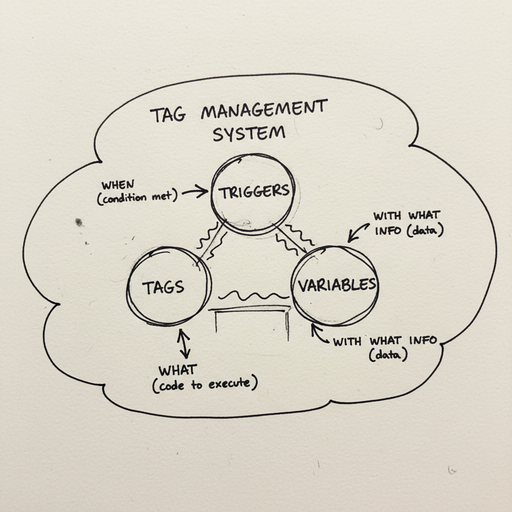 TAG MANAGEMENT
SYSTEM
WHEN
(condition met)
TRIGGERS
WITH WHAT
INFO (data)
TAGS
VARIABLES
WITH WHAT INFO
(data)
WHAT
(code to execute)